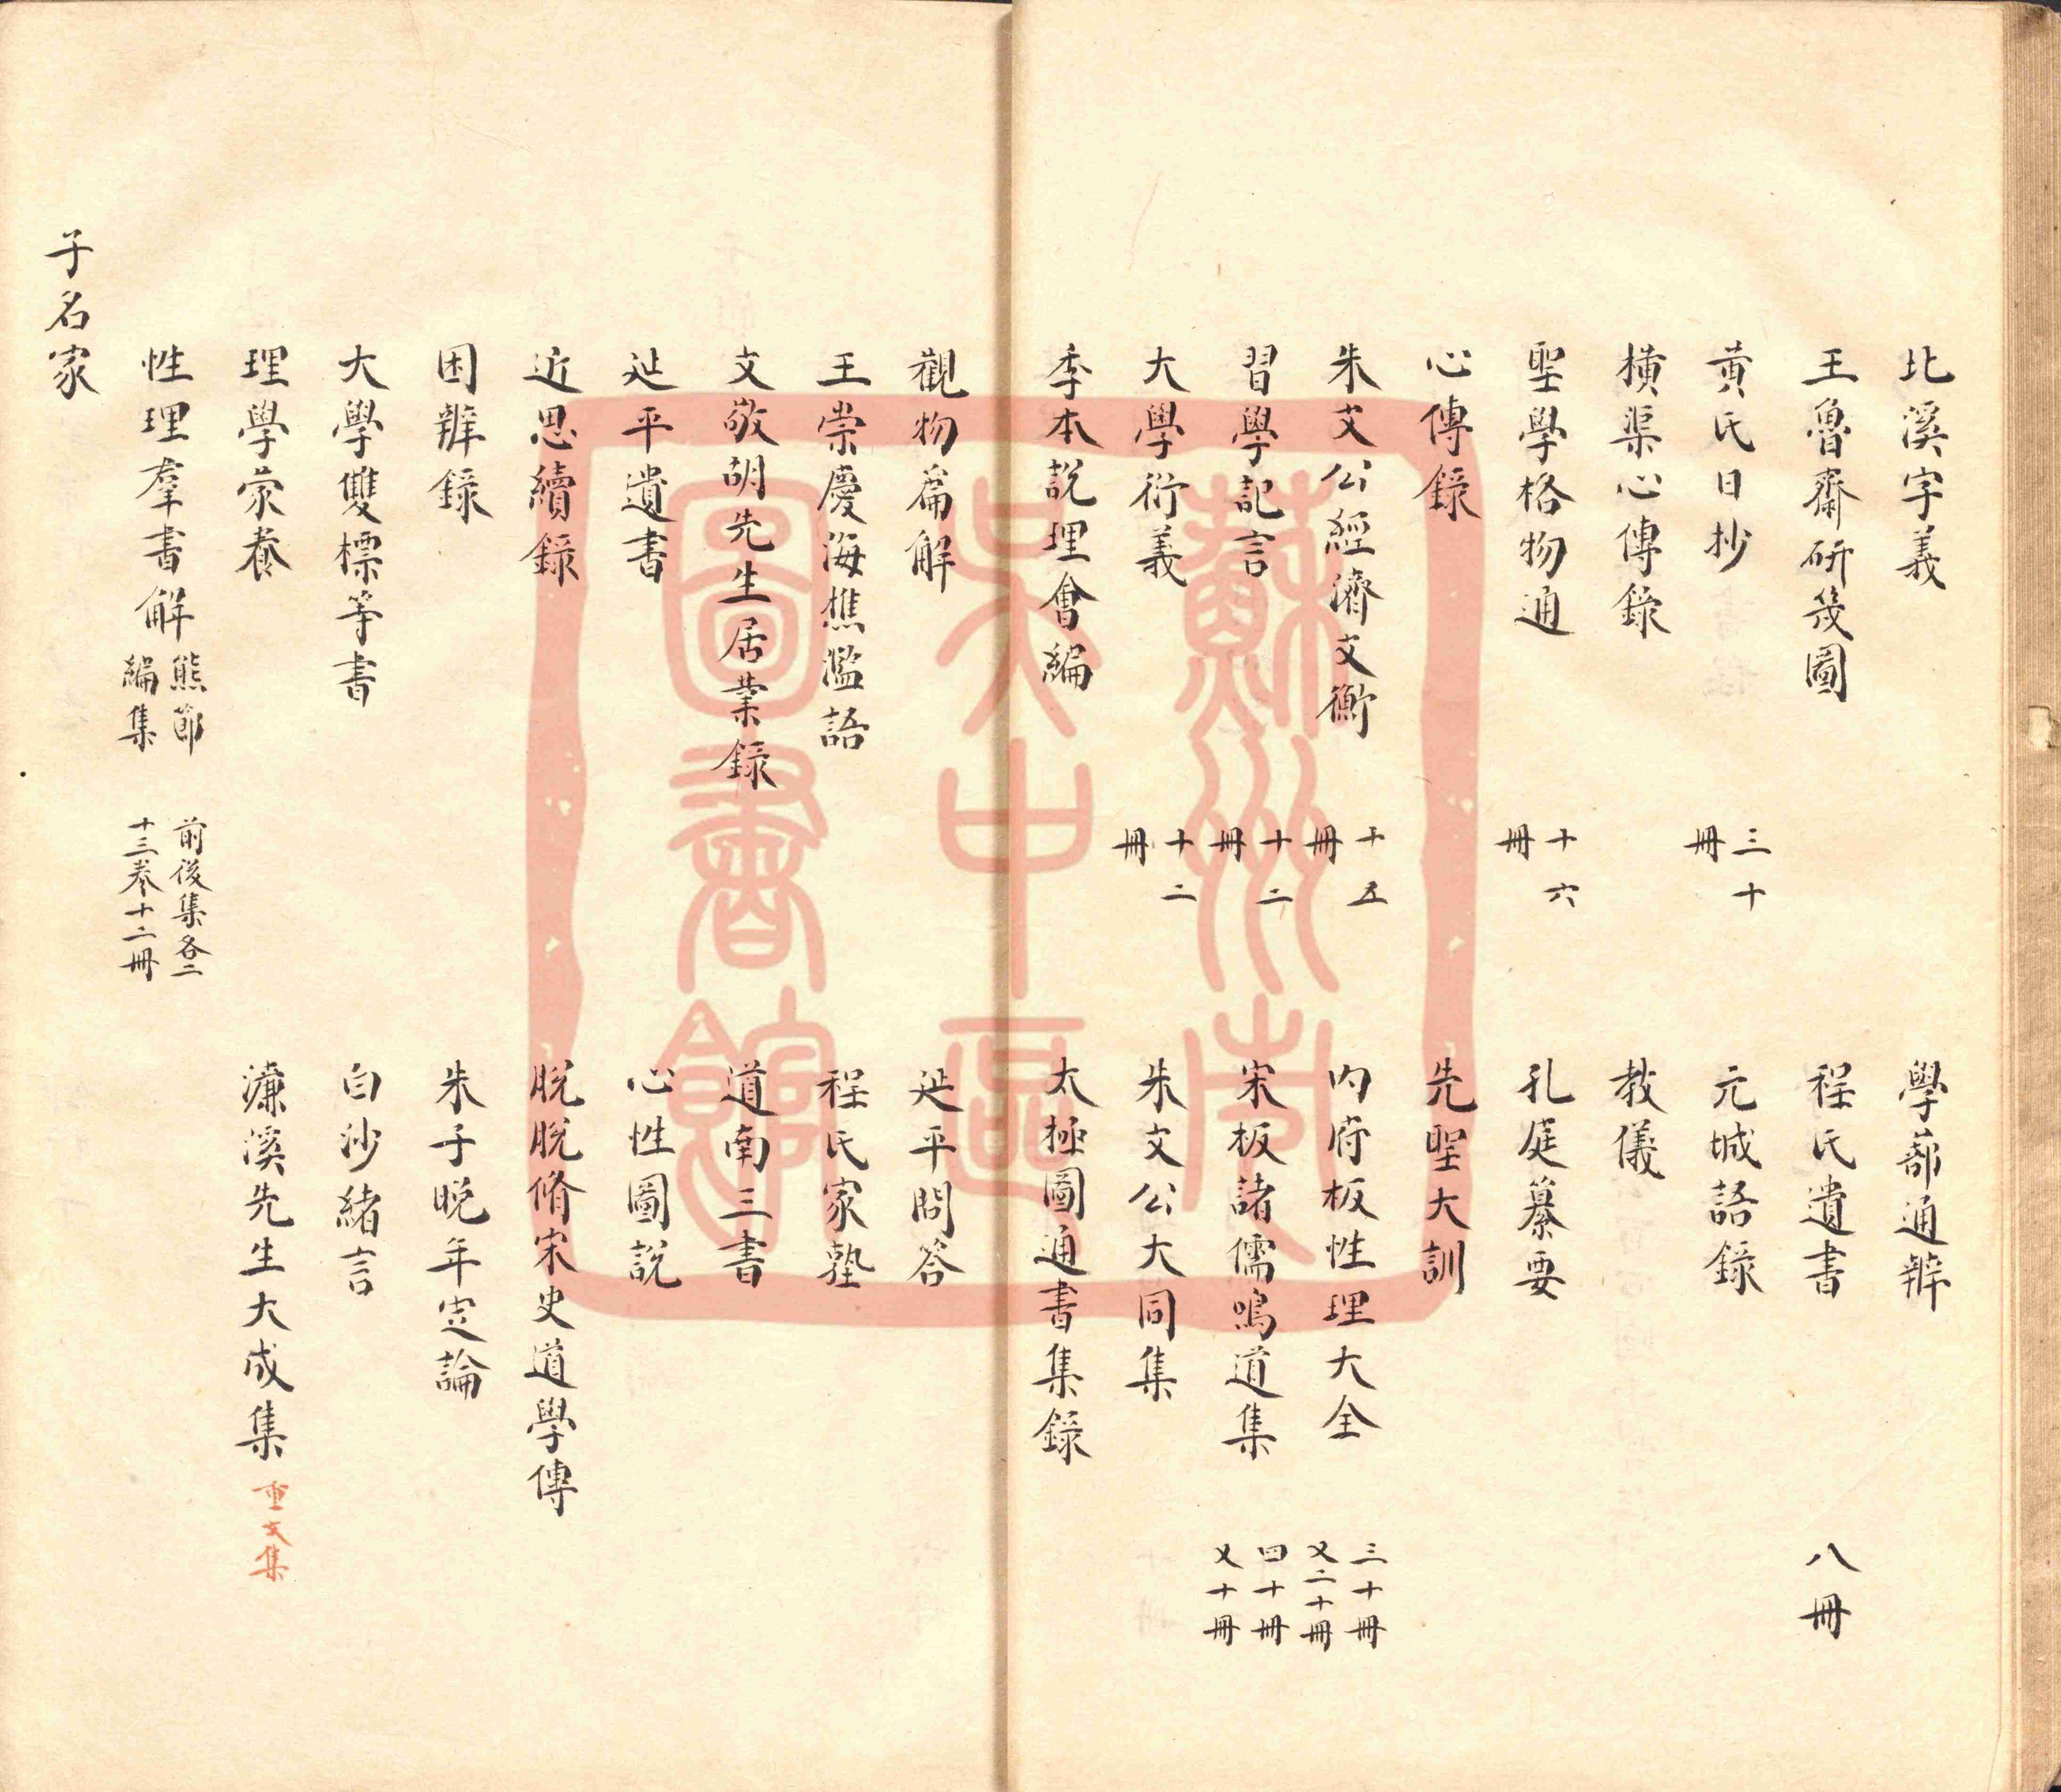 北溪字義　學蔀通辨
王魯齋研幾圖　程氏遺書　八冊
黃氏日抄　三十冊　元城語錄
橫渠心傳錄　教儀
聖學格物通　十六冊　孔庭纂要
心傳錄　先聖大訓
朱文公經濟文衡　十五冊　內府板性理大全　三十冊　又二十冊
習學記言　十二冊　宋板諸儒鳴道集　四十冊　又十冊
大學衍義　十二冊　朱文公大同集
季本說理會編　太極圖通書集錄
觀物篇解　延平問答
王崇慶海樵濫語　程氏家塾
文敬胡先生居業錄　道南三書
延平遺書　心性圖說
近思續錄　脫脫脩宋史道學傳
困辨錄　朱子晚年定論
大學雙標等書　白沙緒言
理學蒙養　濂溪先生大成集　重文集
性理羣書解　熊節編集　前後集各二十三卷十二冊
子名家
蘇州市
吳中區
圖書館